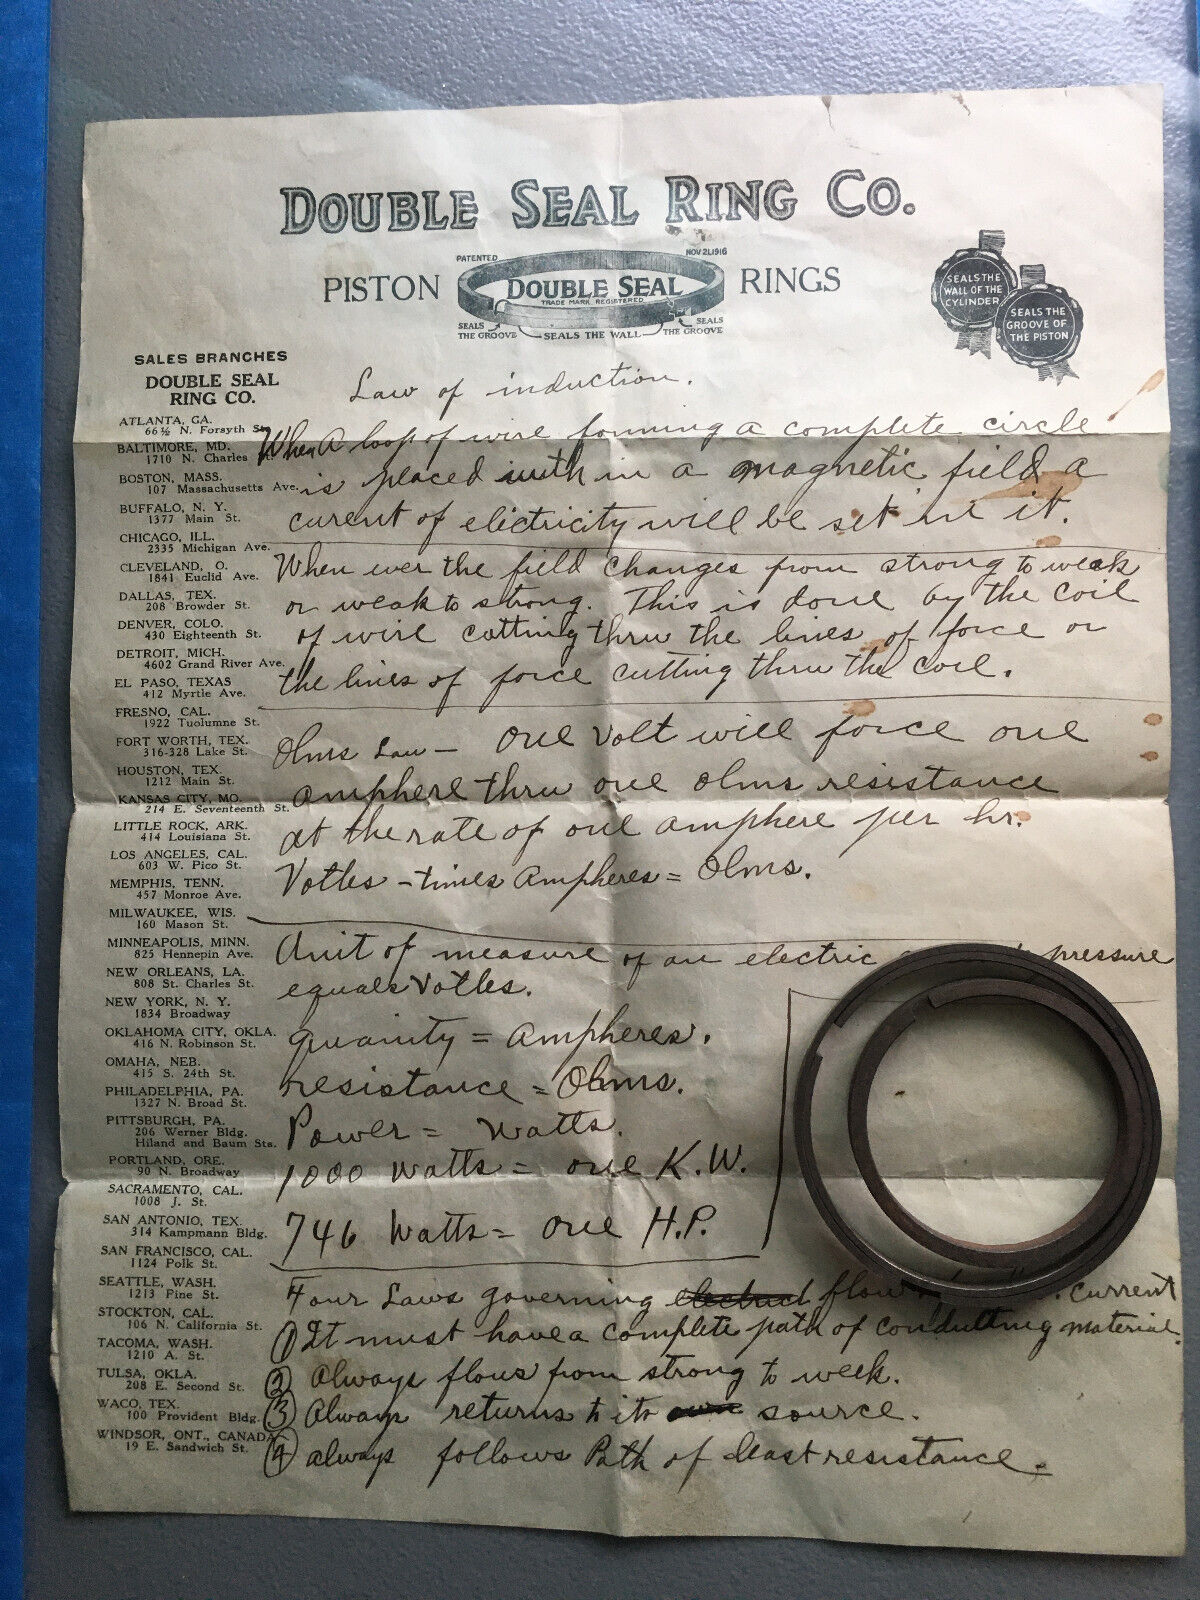 DOUBLE SEAL RING CO.
PATENTED
NOV 21, 1916
PISTON
DOUBLE SEAL
RINGS
TRADE MARK REGISTERED
SEALS THE GROOVE
SEALS THE WALL
SEALS THE GROOVE
SEALS THE
WALL OF THE
CYLINDER
SEALS THE
GROOVE OF
THE PISTON
SALES BRANCHES
DOUBLE SEAL
RING CO.
ATLANTA, GA.
66½ N. Forsyth St.
BALTIMORE, MD.
1710 N. Charles
BOSTON, MASS.
107 Massachusetts Ave.
BUFFALO, N. Y.
1377 Main St.
CHICAGO, ILL.
2335 Michigan Ave.
CLEVELAND, O.
1841 Euclid Ave.
DALLAS, TEX.
208 Browder St.
DENVER, COLO.
430 Eighteenth St.
DETROIT, MICH.
4602 Grand River Ave.
EL PASO, TEXAS
412 Myrtle Ave.
FRESNO, CAL.
1922 Tuolumne St.
FORT WORTH, TEX.
316-328 Lake St.
HOUSTON, TEX.
1212 Main St.
KANSAS CITY, MO.
214 E. Seventeenth St.
LITTLE ROCK, ARK.
414 Louisiana St.
LOS ANGELES, CAL.
603 W. Pico St.
MEMPHIS, TENN.
457 Monroe Ave.
MILWAUKEE, WIS.
160 Mason St.
MINNEAPOLIS, MINN.
825 Hennepin Ave.
NEW ORLEANS, LA.
808 St. Charles St.
NEW YORK, N. Y.
1834 Broadway
OKLAHOMA CITY, OKLA.
416 N. Robinson St.
OMAHA, NEB.
415 S. 24th St.
PHILADELPHIA, PA.
1327 N. Broad St.
PITTSBURGH, PA.
206 Werner Bldg.
Hiland and Baum Sts.
PORTLAND, ORE.
90 N. Broadway
SACRAMENTO, CAL.
1008 J. St.
SAN ANTONIO, TEX.
314 Kampmann Bldg.
SAN FRANCISCO, CAL.
1124 Polk St.
SEATTLE, WASH.
1213 Pine St.
STOCKTON, CAL.
106 N. California St.
TACOMA, WASH.
1210 A. St.
TULSA, OKLA.
208 E. Second St.
WACO, TEX.
100 Provident Bldg.
WINDSOR, ONT., CANADA
19 E. Sandwich St.
Law of induction.
When A loop of wire forming a complete circle
is placed with in a magnetic field a
curent of electricity will be set in it.
When ever the field changes from strong to weak
or weak to strong. This is done by the coil
of wire cutting thru the lines of force or
the lines of force cutting thru the coil.
Ohms Law - one volt will force one
amphere thru one ohms resistance
at the rate of one amphere per hr.
Votles - times Ampheres = Ohms.
Unit of measure of an electric pressure
equals Votles.
quainty = Ampheres.
resistance = Ohms.
Power = Watts.
1000 Watts = one K.W.
746 Watts = one H.P.
Four Laws governing electrical flow current
① It must have a complete path of conducting material.
② Always flows from strong to week.
③ Always returns to its own source.
④ always follows Path of least resistance.